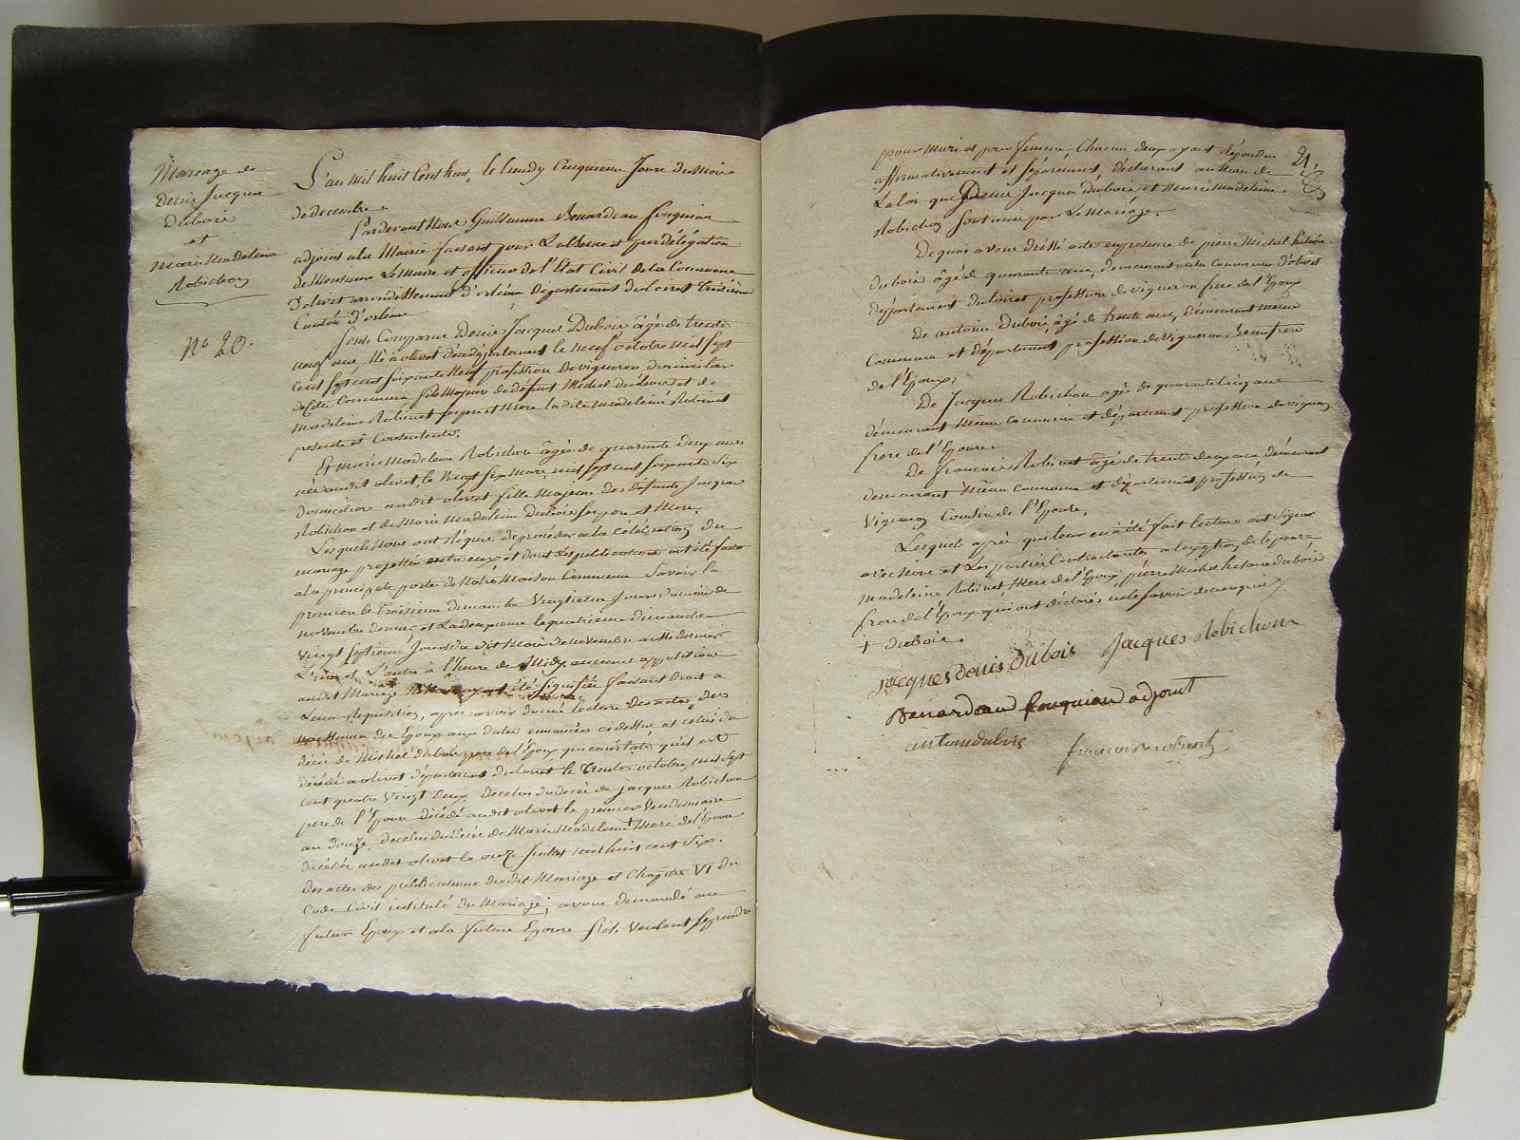 Mariage de
Denis Jacques
Dubois
et
Marie Madeleine
Robichon
No 20.
L'an mil huit Cent huit, le lundy Cinquieme Jour du Mois
de decembre
Pardevant Nous Guillaume Benardeau fouquiau
adjoint a la Mairie faisant pour L'absence et par délégation
de Monsieur Le Maire et officier de l'Etat Civil de la Commune
D'olivet arrondissement d'orléans Département du Loiret Troisieme
Canton d'orléans
Sont Comparus Denis Jacques Dubois âgé de trente
neuf ans, Né a olivet dit département le neuf octobre mil sept
cent soixante Neuf profession de vigneron domicilié
de Cette Commune fils Majeur de défunt Michel dubois et de
Madeleine Robinet ses pere et Mere la dite Madeleine Robinet
presente et Consentente.
Et Marie Madeleine Robichon âgée de quarante deux ans
née audit olivet le Vingt six Mars mil sept cent soixante six
domiciliée audit olivet fille Majeure des défunts Jacques
Robichon et de Marie Madeleine Dubois ses pere et Mere.
Lesquels Nous ont Requis de procéder a la Célébration du
mariage projetté entre eux et dont les publications ont été faites
a la principale porte de Notre Maison Commune Savoir la
premiere le troisieme dimanche Vingtieme Jour du mois de
novembre dernier et La deuxieme le quatrieme dimanche
vingt septieme Jour du dit Mois de novembre aussi dernier
L'une et L'autre à l'heure de Midy aucune opposition
audit Mariage été Signifiée faisant droit a
Leur Requisition, après avoir donné lecture des actes de
naissance des Epoux aux dates enoncées cidessus et celui du
décès de Michel dubois pere de l'Epoux qui constate qu'il est
décédé a olivet département du loiret le octobre, mil sept
cent quatre Vingt deux, De celui du décès de Jacques Robichon
pere de l'Epouse Décédé audit olivet le premier Vendemiaire
an douze, De celui du décès de Marie Madeleine † Mere de l'Epouse
décédée audit olivet le onze mil huit cent Six.
Des actes des publications dudit Mariage et Chapitre VI du
Code Civil intitulé du Mariage; avons demandé au
futur Epoux et a la future Epouse S'ils Veulent se prendre
21.
pour Mari et pour femme, Chacun deux ayant répondu
affirmativement et séparément, déclarons au Nom de
La loi que Denis Jacques dubois et Marie Madeleine
Robichon sont unis par Le Mariage.
De quoi avons dréssé acte en présence de pierre Michel
dubois âgé de quarante ans, demeurant en la commune d'olivet
département du loiret profession de vigneron frere de l'Epoux
De antoine Dubois, âgé de trente ans, demeurant même
Commune et département profession de Vigneron
de l'Epoux;
De Jacques Robichon agé de quarante Cinq ans
démeurant Même Commune et département profession de vigneron
frere de l'Epouse
De francois Robinet âgé de trente deux ans démeurant
demeurant Même commune et département profession de
Vigneron Cousin de l'Epoux.
Lesquels après qu'il leur en a été fait lecture ont Signé
avec Nous et Les parties Contractantes a l'exception de la
Madeleine Robinet, Mere de l'Epoux pierre Michel dubois
frere de l'Epoux qui ont déclarés ne le savoir de ce enquis
† dubois.
Jacques denis Dubois Jacques Robichon
Benardeau fouquiau adjoint
antoine dubois francois robinet